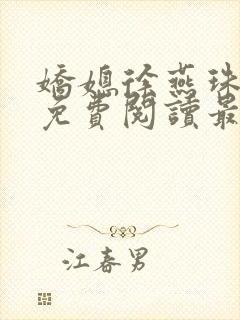 嬌媳徐燕珠
免費閱讀最
江春男